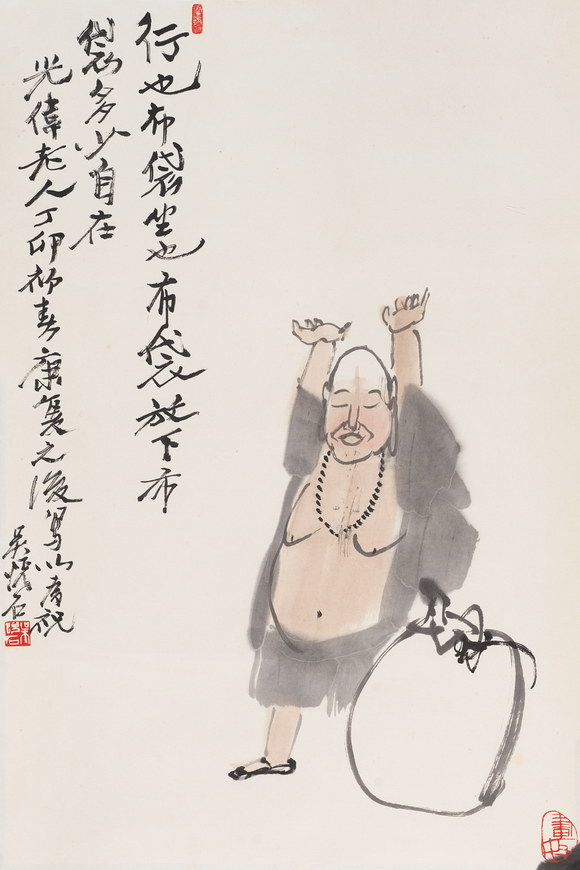 行也布袋坐也布袋放下布
袋多少自在
光偉老人丁卯初春康復之後寫此為祝
吳悦石